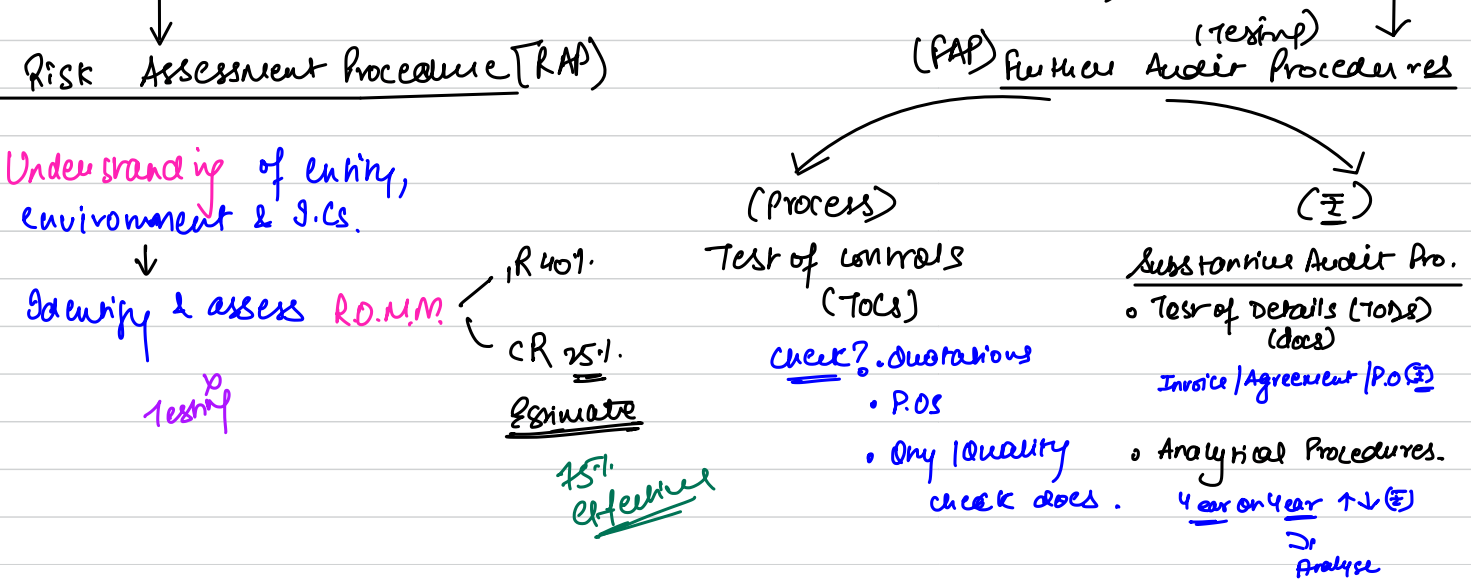 Risk Assessment Procedure (RAP)
Understanding of entity,
environment & I.Cs.
Identify & assess R.O.M.M.
IR 40%.
CR 25%.
Testing
Estimate
75%.
effective
(Testing)
(FAP) Further Audit Procedures
(Process)
Test of controls
(TOCs)
check? • Quotations
• P.Os
• Qny / Quality
check docs.
(₹)
Substantive Audit Pro.
• Test of Details (TODs)
(docs)
Invoice / Agreement / P.O (₹)
• Analytical Procedures.
Year on Year ↑↓ (₹)
Analyse